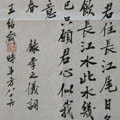 君住長江尾日
飲長江水此水幾
已只願君心似我
意
錄李之儀詞